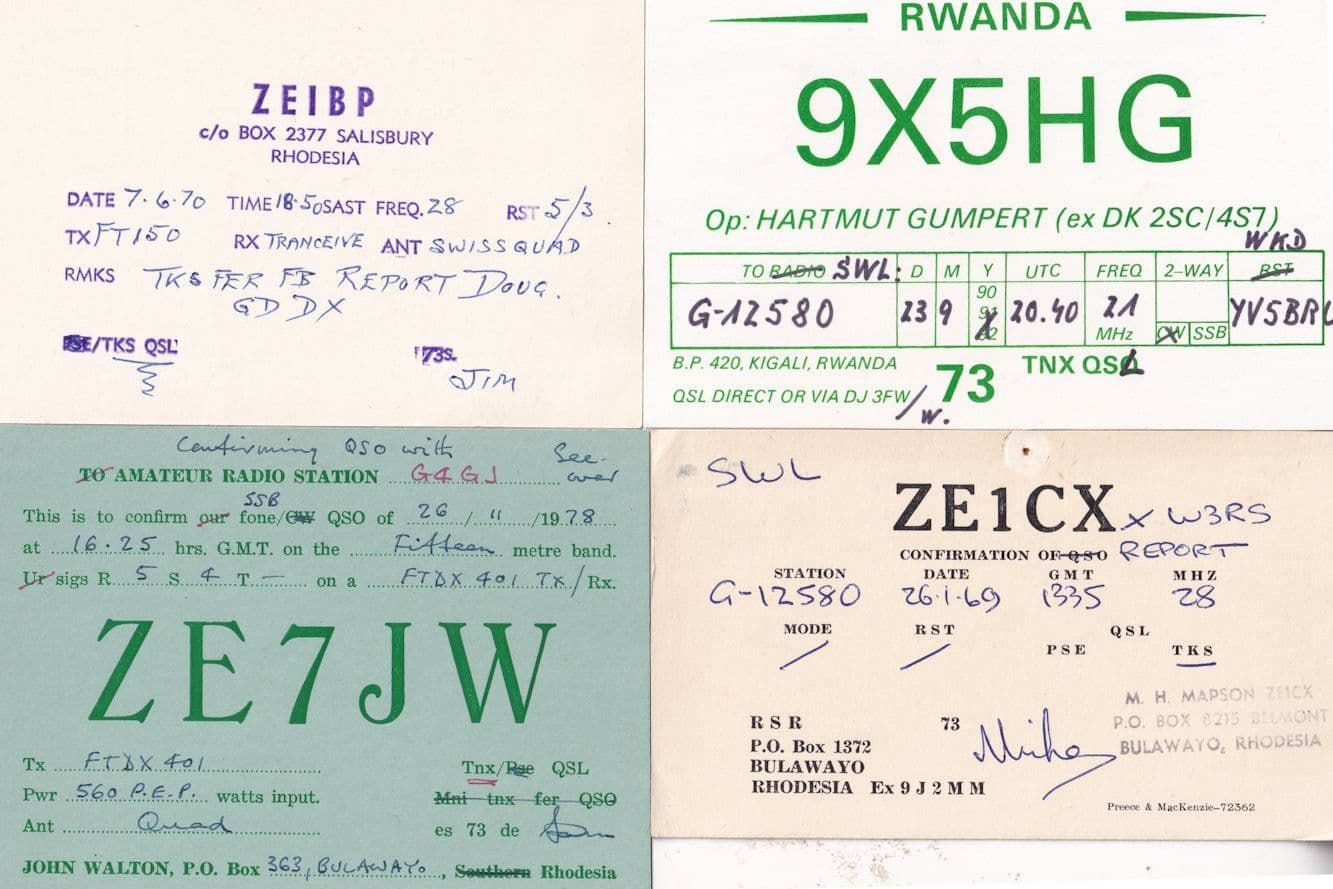 ZE1BP
c/o BOX 2377 SALISBURY
RHODESIA
DATE 7.6.70 TIME 18.50 SAST FREQ. 28 RST 5/3.
TX FT150 RX TRANCEIVE ANT SWISS QUAD
RMKS TKS FER FB REPORT DOUG.
GD DX
PSE/TKS QSL 73S.
JIM
RWANDA
9X5HG
Op: HARTMUT GUMPERT (ex DK 2SC/4S7)
WKD
TO RADIO SWL: D M Y UTC FREQ 2-WAY RST
G-12580 23 9 90 91 92 20.40 21 MHz CW SSB YV5BRU
B.P. 420, KIGALI, RWANDA
73 TNX QSL
QSL DIRECT OR VIA DJ 3FW/W.
Confirming QSO with See-
TO AMATEUR RADIO STATION G4GJ over
SSB
This is to confirm our fone/CW QSO of 26/11/1978
at 16.25 hrs. G.M.T. on the Fifteen metre band.
Ur sigs R 5 S 4 T - on a FTDX 401 TX/Rx.
ZE7JW
Tx FTDX 401 Tnx/Pse QSL
Pwr 560 P.E.P. watts input. Mni tnx fer QSO
Ant Quad es 73 de
JOHN WALTON, P.O. Box 363, BULAWAYO, Southern Rhodesia
SWL
ZE1CX x W3RS
CONFIRMATION OF QSO REPORT
STATION DATE GMT MHZ
G-12580 26.1.69 1335 28
MODE RST QSL
/ / PSE TKS
M. H. MAPSON ZE1CX
RSR 73 Mike P.O. BOX 8215 BELMONT
P.O. Box 1372 BULAWAYO, RHODESIA
BULAWAYO
RHODESIA Ex 9J2MM
Preece & MacKenzie-72362